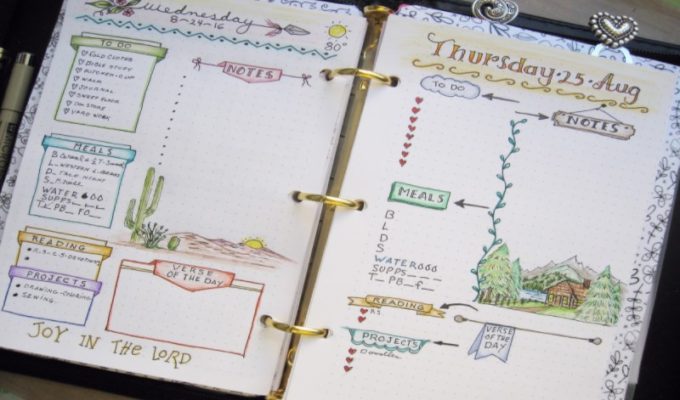 Wednesday
8-24-16
80°
TO DO
FOLD CLOTHES
BIBLE STUDY
KITCHEN-CUP
WALK
JOURNAL
SWEEP FLOOR
YARD WORK
NOTES
MEALS
B
L
D TACO NIGHT
S
WATER
SUPPS
T_ PB__ F
READING
PROJECTS
DRAWING-COLORING
SEWING
VERSE
OF THE DAY
JOY IN THE LORD
Thursday·25·Aug
TO DO
NOTES
MEALS
B
L
D
S
WATER
SUPPS
T_ PB_ F_
READING
PROJECTS
VERSE
OF THE
DAY